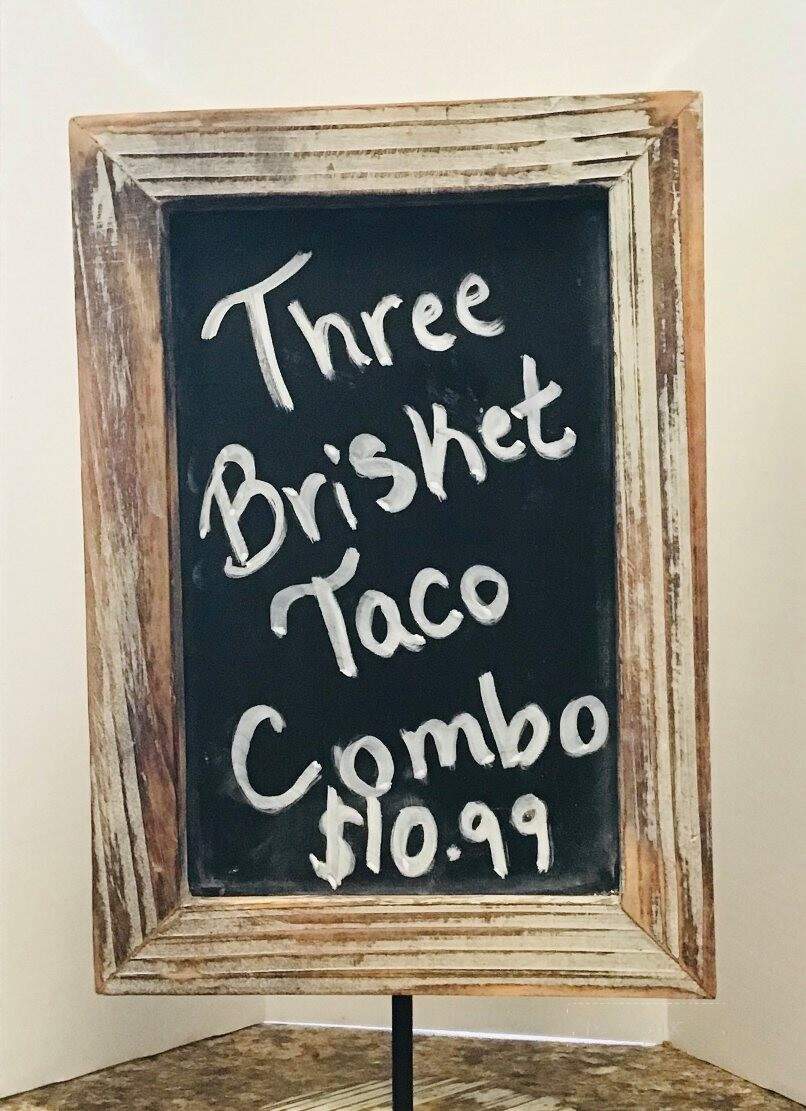 Three
Brisket
Taco
Combo
$10.99